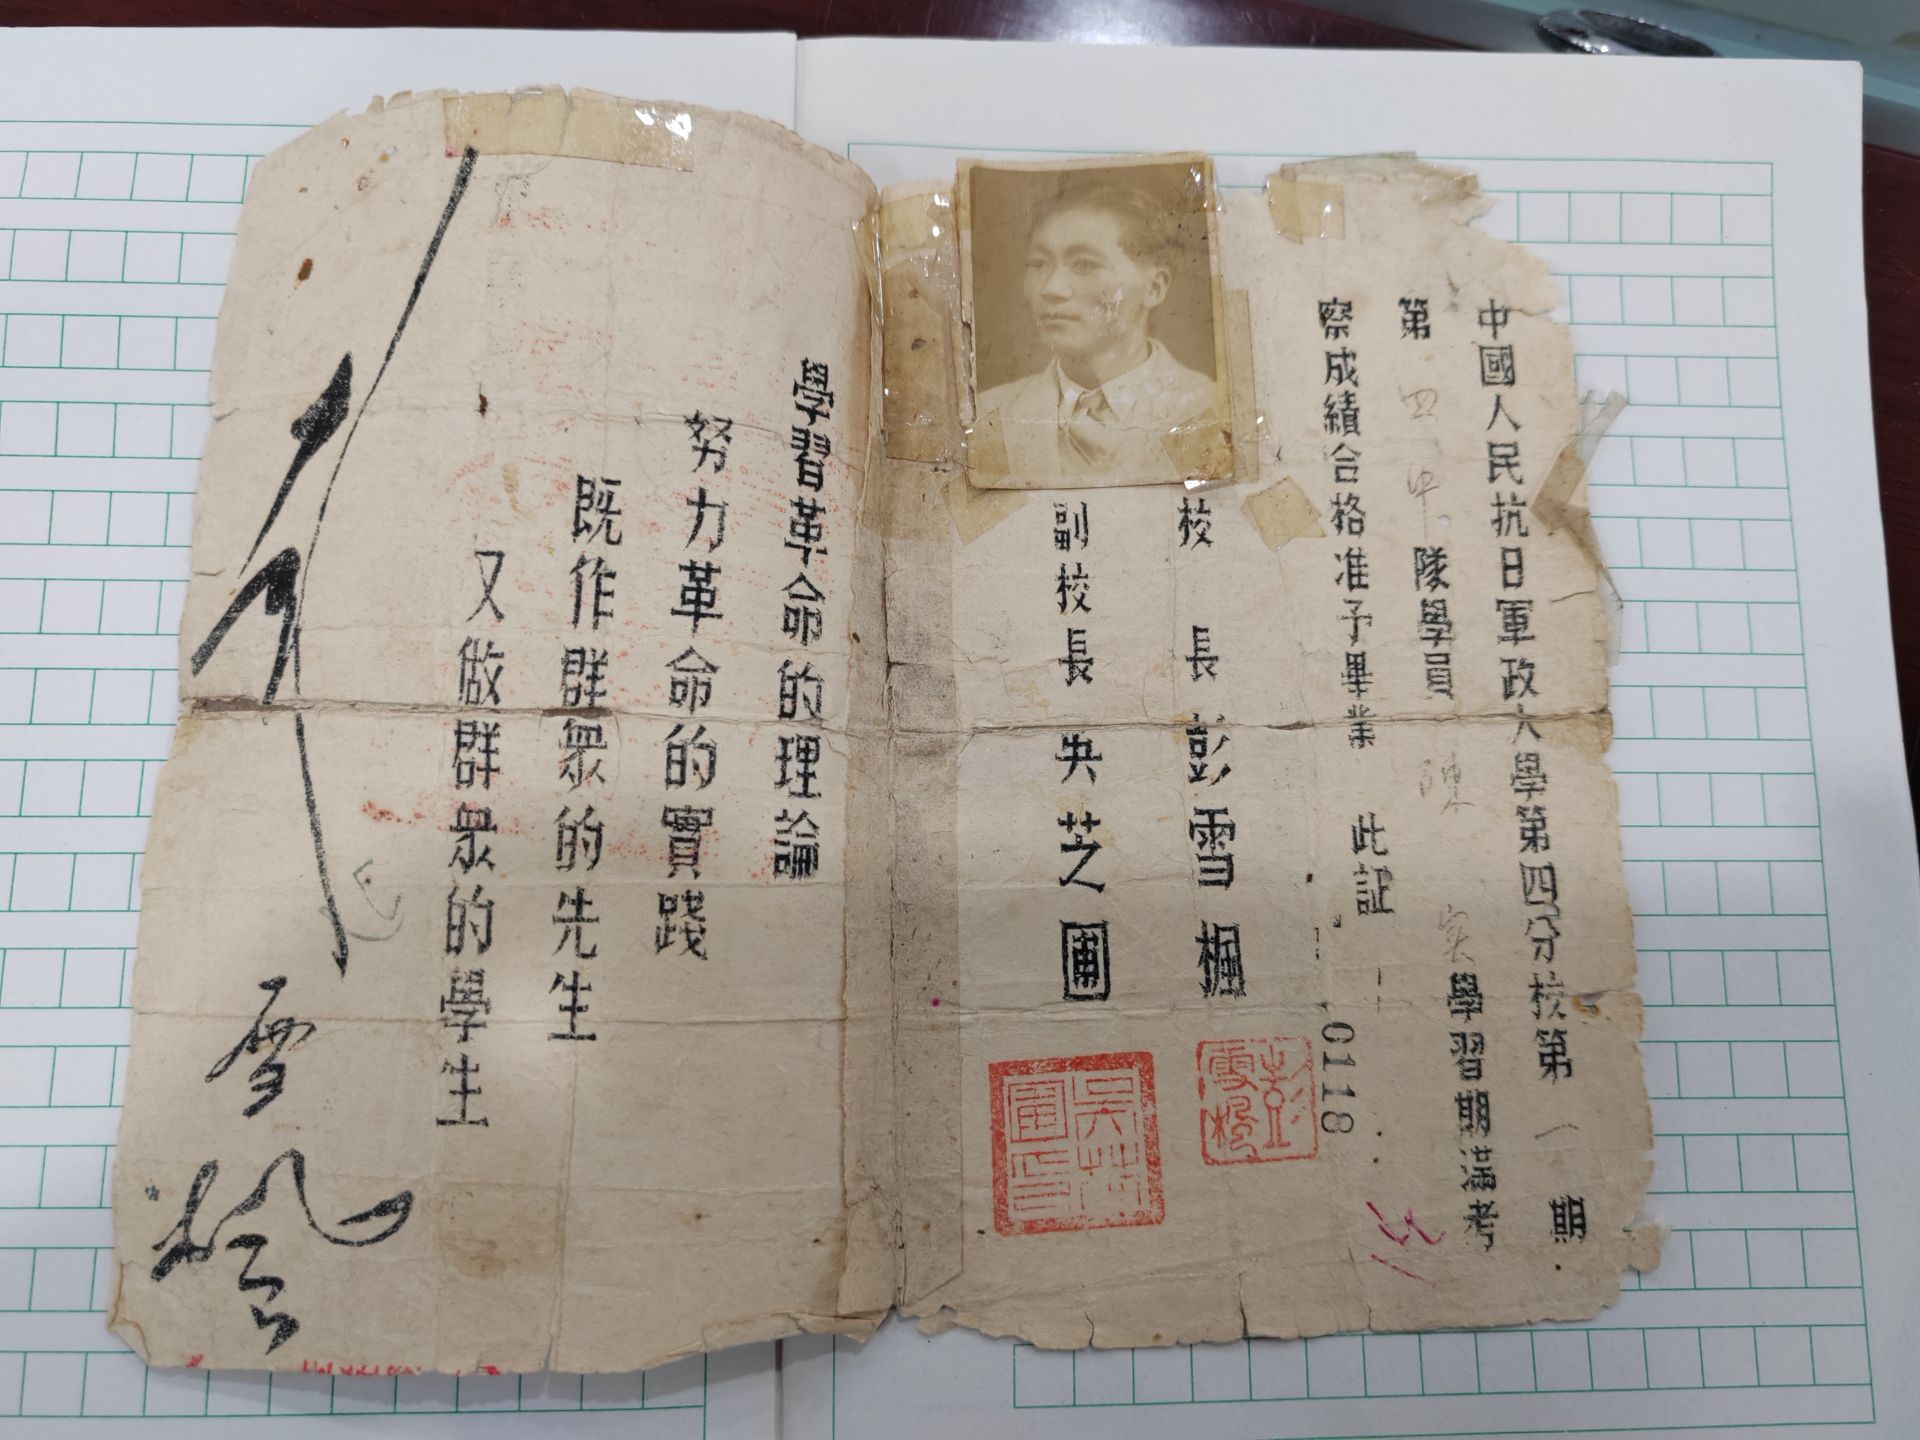 中國人民抗日軍政大學第四分校第一期
第四中隊學員陳 実學習期滿考
察成績合格准予畢業 此証
0118
校 長 彭雪楓
副校長 吳芝圃
彭雪楓
吳芝圃印
學習革命的理論
努力革命的實踐
既作群眾的先生
又做群眾的學生
彭雪楓